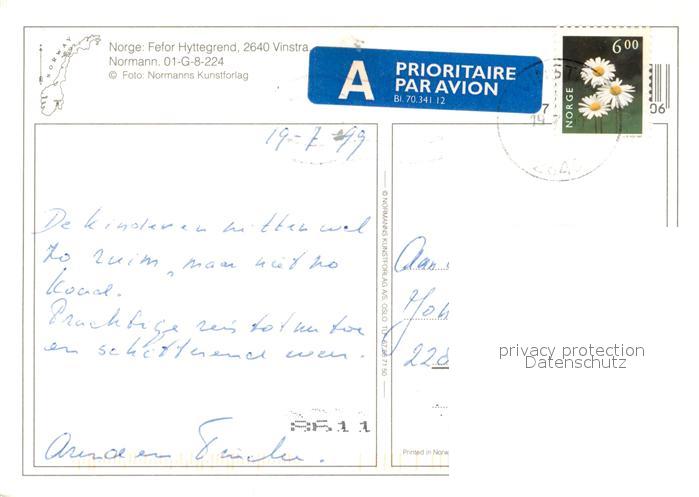 NORWAY
Norge: Fefor Hyttegrend, 2640 Vinstra.
Normann. 01-G-8-224
© Foto: Normanns Kunstforlag
A PRIORITAIRE
PAR AVION
Bl. 70.341 12
6 00
NORGE
06
19-7-'99
De kinderen zitten wel
zo ruim, maar niet zo
koud.
Prachtige reis tot nu toe
en schitterend weer.
8611
Aan
228
© NORMANNS KUNSTFORLAG A/S, OSLO
privacy protection
Datenschutz
Printed in Norw